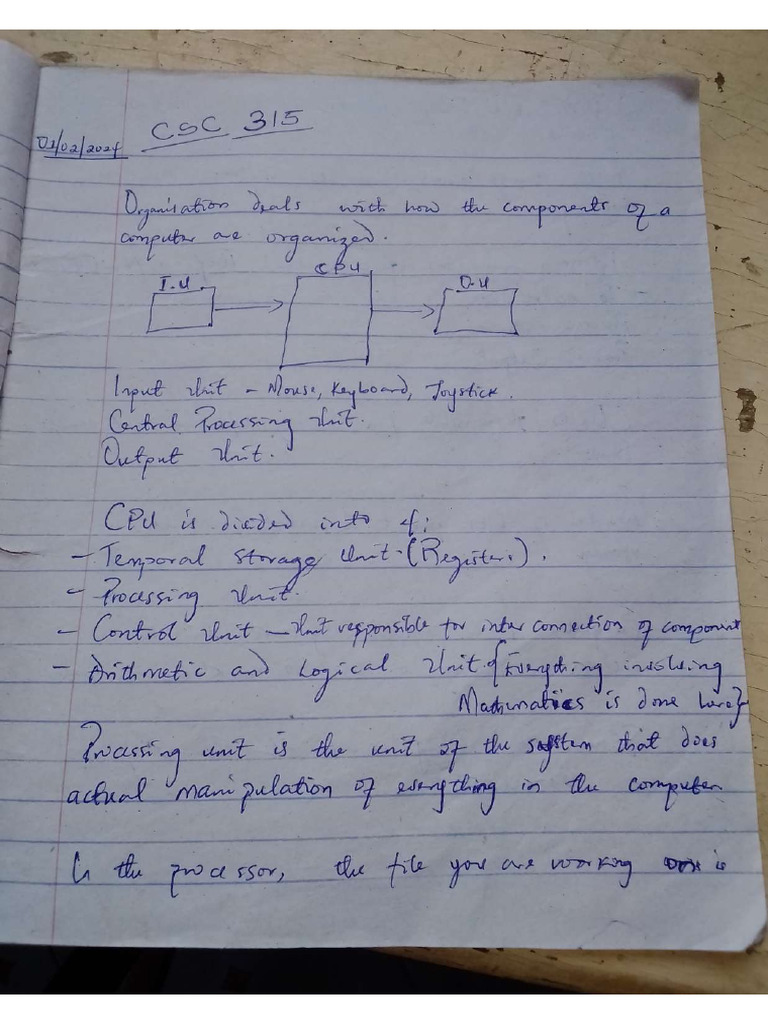 CSC 315
02/02/2024
Organisation deals with how the components of a
computer are organized.
I.U CPU O.U
Input Unit - Mouse, Keyboard, Joystick.
Central Processing Unit.
Output Unit.
CPU is divided into 4:
- Temporal Storage Unit. (Registers).
- Processing Unit.
- Control Unit - Unit responsible for inter connection of component
- Arithmetic and Logical Unit. {Everything involving
Mathematics is done here}
Processing unit is the unit of the system that does
actual manipulation of everything in the computer
In the processor, the file you are working is